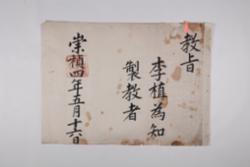 教旨
李植為知
製教者
崇禎四年五月十六日